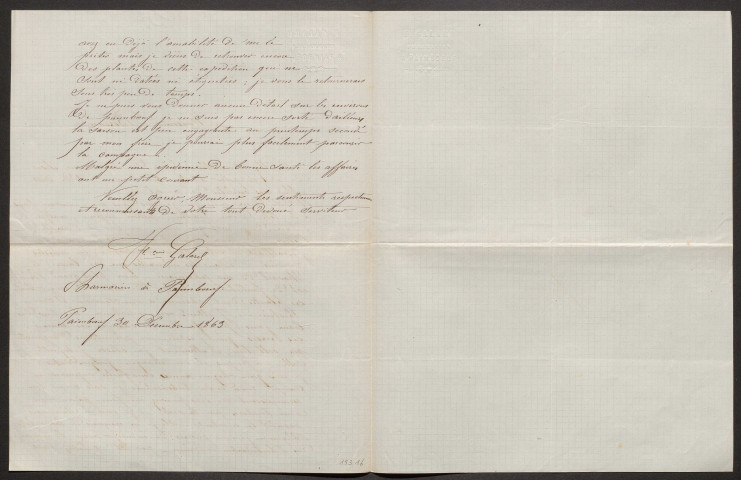 avez eu déjà l'amabilité de me le
prêter mais je viens de retrouver encore
des plantes de cette expédition qui ne
sont ni datées ni étiquetées ; je vous le retournerais
sous très peu de temps.
Je ne puis vous donner aucun détail sur les environs
de Paimboeuf je ne suis pas encore sorti d'ailleurs
la saison est peu engageante au printemps secondé
par mon frère je pourrai plus facilement parcourir
la campagne.
Malgré une épidémie de bonne santé les affaires
ont un petit courant
Veuillez agréer Monsieur les sentiments respectueux
et reconnaissants de votre tout dévoué serviteur
Pharmacien à Paimboeuf
Paimboeuf 30 Décembre 1863